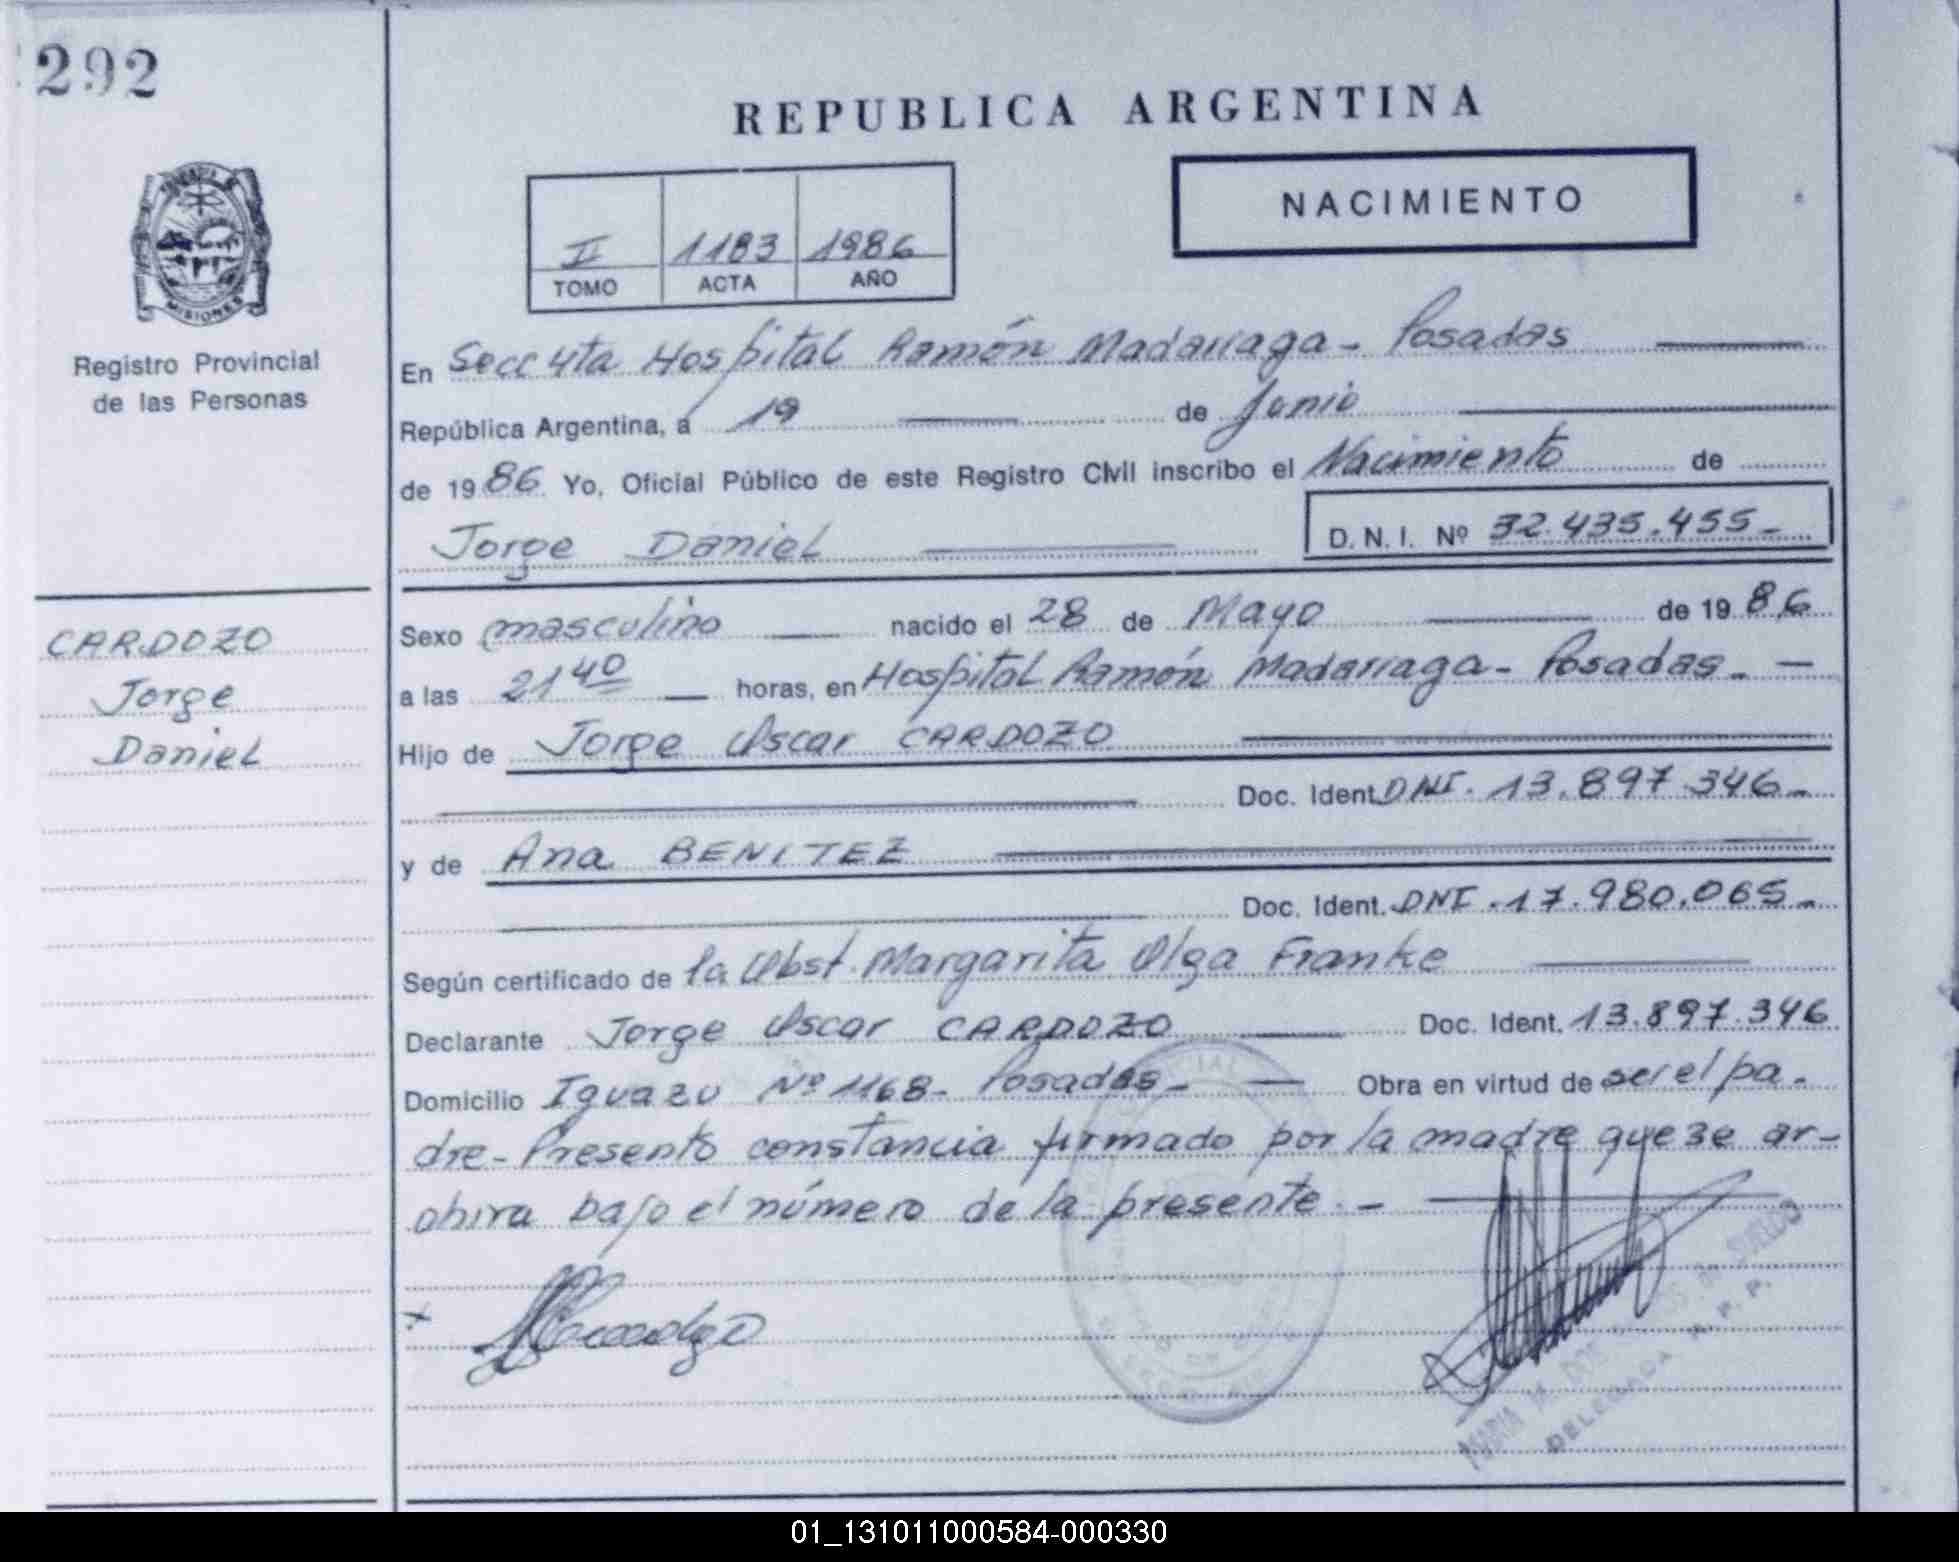 292
REPUBLICA ARGENTINA
NACIMIENTO
II 1183 1986
TOMO ACTA AÑO
MISIONES
Registro Provincial
de las Personas
En Secc 4ta Hospital Ramón Madariaga - Posadas
República Argentina, a 19 de Junio
de 1986 Yo, Oficial Público de este Registro Civil inscribo el Nacimiento de
Jorge Daniel D.N.I. Nº 32.435.455-
CARDOZO
Jorge
Daniel
Sexo masculino nacido el 28 de Mayo de 1986
a las 21 40 horas, en Hospital Ramón Madariaga - Posadas. -
Hijo de Jorge Oscar CARDOZO
Doc. Ident. DNI. 13.897.346-
y de Ana BENITEZ
Doc. Ident. DNI. 17.980.065-
Según certificado de la Obst. Margarita Olga Franke
Declarante Jorge Oscar CARDOZO Doc. Ident. 13.897.346
Domicilio Iguazu Nº 1168- Posadas- Obra en virtud de ser el pa-
dre- Presento constancia firmado por la madre que se ar-
chiva bajo el número de la presente. -
MARIA DOS DE
DELEGADA R. P. P.
01_131011000584-000330